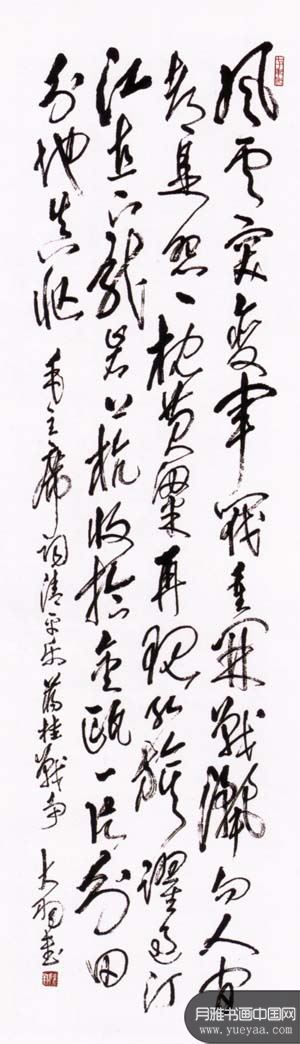 風雲突變軍閥重開戰灑向人間
都是怨一枕黄粱再現紅旗躍過汀
江直下龍岩上杭收拾金甌一片分田
分地真忙 毛主席詞清平樂蔣桂戰爭 大書
月雅书画中国网
www.yueyaa.com